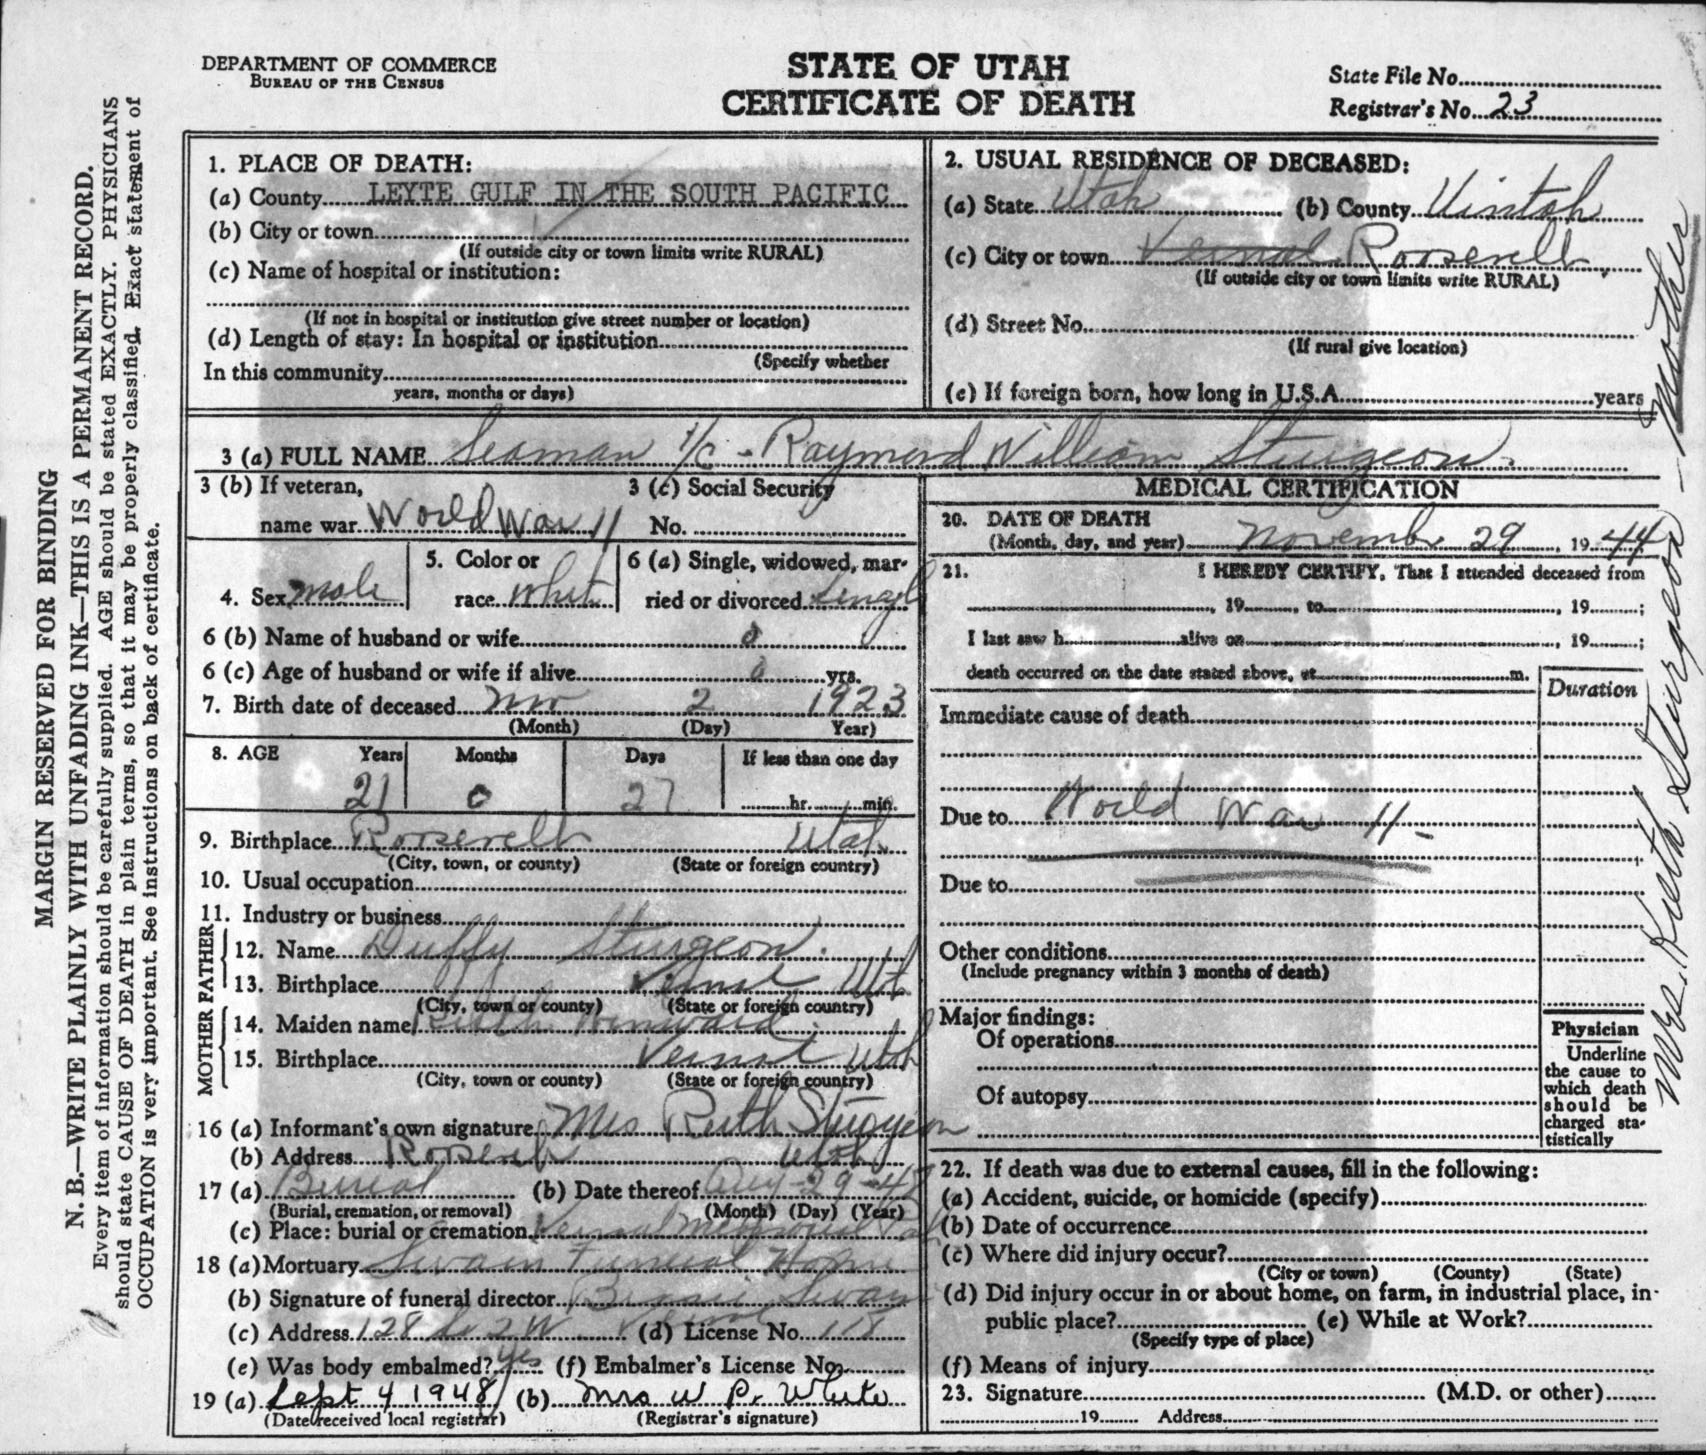 DEPARTMENT OF COMMERCE
BUREAU OF THE CENSUS
STATE OF UTAH
CERTIFICATE OF DEATH
State File No.
Registrar's No. 23
MARGIN RESERVED FOR BINDING
N. B.—WRITE PLAINLY WITH UNFADING INK—THIS IS A PERMANENT RECORD.
Every item of information should be carefully supplied. AGE should be stated EXACTLY. PHYSICIANS
should state CAUSE OF DEATH in plain terms, so that it may be properly classified. Exact statement of
OCCUPATION is very important. See instructions on back of certificate.
1. PLACE OF DEATH:
(a) County LEYTE GULF IN THE SOUTH PACIFIC
(b) City or town
(If outside city or town limits write RURAL)
(c) Name of hospital or institution:
(If not in hospital or institution give street number or location)
(d) Length of stay: In hospital or institution
(Specify whether
In this community
years, months or days)
2. USUAL RESIDENCE OF DECEASED:
(a) State Utah (b) County Uintah
(c) City or town Vernal Roosevelt
(If outside city or town limits write RURAL)
(d) Street No.
(If rural give location)
(e) If foreign born, how long in U.S.A. years
3 (a) FULL NAME Seaman 1/c - Raymond William Sturgeon.
3 (b) If veteran,
name war World War II
3 (c) Social Security
No.
4. Sex male
5. Color or
race White
6 (a) Single, widowed, mar-
ried or divorced Single
6 (b) Name of husband or wife 0
6 (c) Age of husband or wife if alive 0 yrs.
7. Birth date of deceased Nov 2 1923
(Month) (Day) Year)
8. AGE Years Months Days If less than one day
21 0 27 hr. min.
9. Birthplace Roosevelt Utah
(City, town, or county) (State or foreign country)
10. Usual occupation
11. Industry or business
FATHER
12. Name Duffy Sturgeon.
13. Birthplace Vernal Ut
(City, town or county) (State or foreign country)
MOTHER
14. Maiden name Ruth
15. Birthplace Vernal Utah
(City, town or county) (State or foreign country)
16 (a) Informant's own signature Mrs Ruth Sturgeon
(b) Address Roosevelt Utah
17 (a) Burial (b) Date thereof Aug-29-48
(Burial, cremation, or removal) (Month) (Day) (Year)
(c) Place: burial or cremation Vernal Memorial
18 (a) Mortuary Swain Funeral Home
(b) Signature of funeral director Bessie Swain
(c) Address 128 So 2 W Vernal (d) License No. 118
(e) Was body embalmed? yes (f) Embalmer's License No.
19 (a) Sept 4 1948 (b) Mrs W P. White
(Date received local registrar) (Registrar's signature)
MEDICAL CERTIFICATION
20. DATE OF DEATH
(Month, day, and year) November 29, 1944
21. I HEREBY CERTIFY, That I attended deceased from
, 19 , to , 19 ;
I last saw h alive on , 19 ;
death occurred on the date stated above, at m.
Duration
Immediate cause of death
Due to World War II-
Due to
Other conditions
(Include pregnancy within 3 months of death)
Major findings:
Of operations
Of autopsy
Physician
Underline
the cause to
which death
should be
charged sta-
tistically
22. If death was due to external causes, fill in the following:
(a) Accident, suicide, or homicide (specify)
(b) Date of occurrence
(c) Where did injury occur?
(City or town) (County) (State)
(d) Did injury occur in or about home, on farm, in industrial place, in
public place? (e) While at Work?
(Specify type of place)
(f) Means of injury
23. Signature (M.D. or other)
19 Address
Mrs. Ruth Sturgeon - Mother